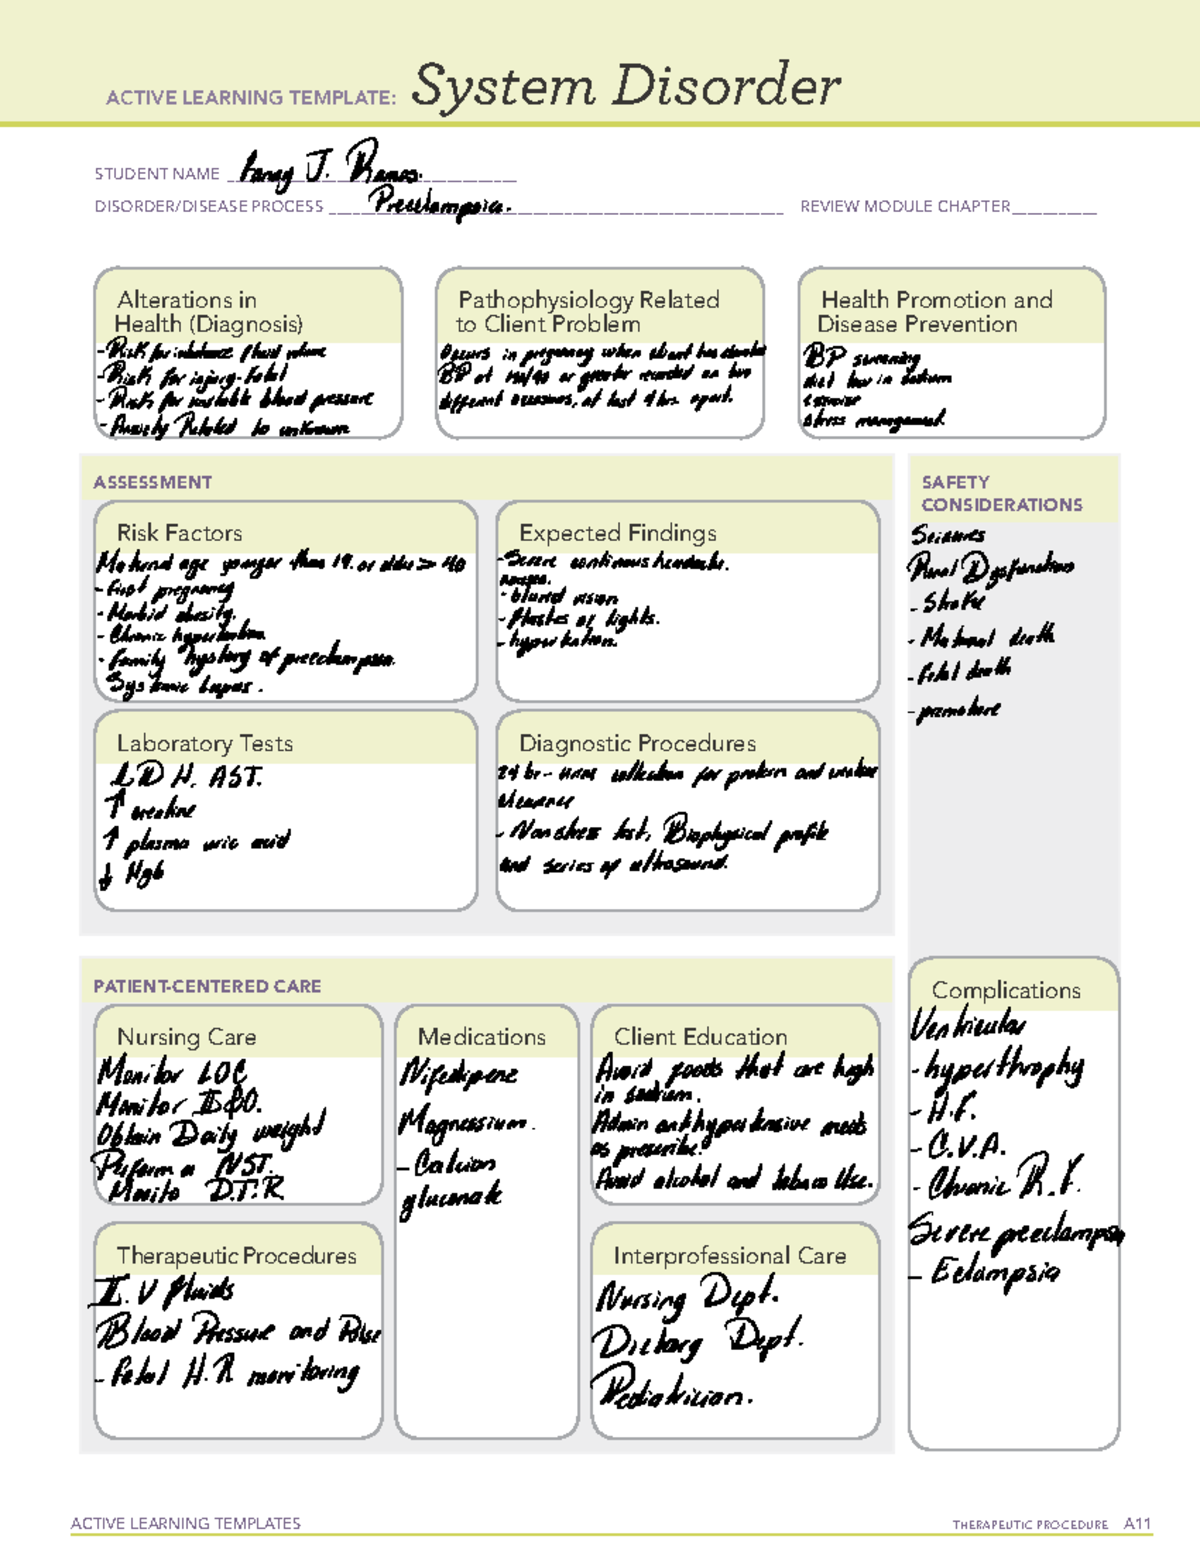 ACTIVE LEARNING TEMPLATE: System Disorder
STUDENT NAME J. Ramos.
DISORDER/DISEASE PROCESS Preeclampsia. REVIEW MODULE CHAPTER
Alterations in
Health (Diagnosis)
- Risk for imbalance fluid volume
- Risk for injury-fetal
- Risk for unstable blood pressure
- Anxiety Related to unknown
Pathophysiology Related
to Client Problem
Occurs in pregnancy when client has elevated
BP at 140/90 or greater recorded on two
different occasions, at last 4 hrs apart.
Health Promotion and
Disease Prevention
BP screening
diet low in sodium
exercise
stress management
ASSESSMENT
Risk Factors
Maternal age younger than 19. or older > 40
- First pregnancy
- Morbid obesity.
- Chronic hypertention
- Family hystory of preeclampsia.
Systemic Lupus.
Expected Findings
- Severe continous headache.
nausea.
- blured vision
- Flashes of lights.
- hypertention.
SAFETY
CONSIDERATIONS
Seizures
Renal Dysfunction
- Stroke
- Maternal death
- Fetal death
- premature
Laboratory Tests
LDH. AST.
↑ creatine
↑ plasma uric acid
↓ Hgb
Diagnostic Procedures
24 hr - urine collection for protein and
clearence
- Non stress test, Biophysical profile
and series of ultrasound.
PATIENT-CENTERED CARE
Nursing Care
Monitor LOC
Monitor I&O.
Obtain Daily weight
Perform a NST.
Monito D.T.R
Medications
Nifedipene
Magnessium.
- Calcium
gluconate
Client Education
Avoid foods that are high
in sodium.
Admin antihypertensive meds
as prescribe.
Avoid alcohol and tobacco Use.
Therapeutic Procedures
I.V fluids
Blood Pressure and Pulse
- Fetal H.R monitoring
Interprofessional Care
Nursing Dept.
Dietary Dept.
Pediatrician.
Complications
Ventricular
- hyperthrophy
- H.F.
- C.V.A.
- Chronic R.F.
Severe preeclampsia
- Eclampsia
ACTIVE LEARNING TEMPLATES
THERAPEUTIC PROCEDURE A11